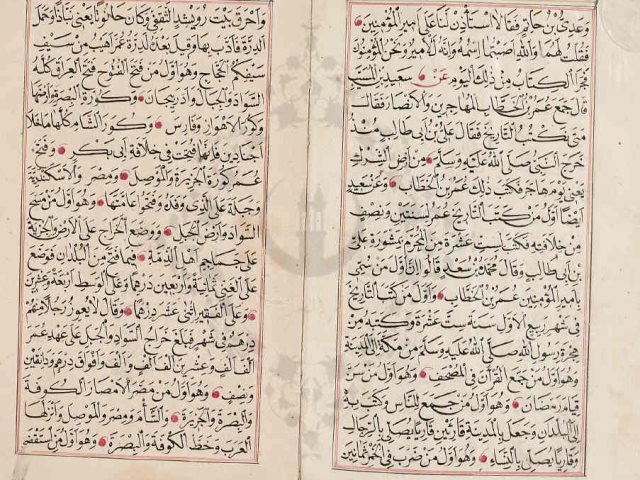 وعدي بن حاتم فقالا استأذن لنا على امير المؤمنين
فقلت لهما والله اصبتما اسمه وانه لامير ونحن المؤمنون
فجرى الكتاب من ذلك اليوم عن سعيد بن المسيب
قال جمع عمر بن الخطاب المهاجرين والانصار فقال
متى نكتب التاريخ فقال علي بن ابي طالب منذ
خرج النبي صلى الله عليه وسلم من ارض الشرك
يعني يوم هاجر فكتب ذلك عمر بن الخطاب وعن سعيد
ايضا اول من كتب التاريخ عمر لسنتين ونصف
من خلافته فكتب لست عشرة من المحرم بمشورة علي
بن ابي طالب وقال محمد بن سعيد قالوا ان اول من سمى
بامير المؤمنين عمر بن الخطاب واول من كتب التاريخ
في شهر ربيع الاول سنة ست عشرة وكتبه من
هجرة رسول الله صلى الله عليه وسلم من مكة الى المدينة
وهو اول من جمع القرآن في المصحف وهو اول من سن
قيام رمضان وهو اول من جمع للناس وكتب به
الى البلدان وجعل بالمدينة قارئين قاريا يصلي بالرجال
وقاريا يصلي بالنساء وهو اول من ضرب في الخمر ثمانين
واحرق بيت رويشد الثقفي وكان حانوتا يعني نباذا وحمل
الدرة فادب بها وقيل بعده لدرة عمر اهيب من سيف
سيفكم الحجاج وهو اول من فتح الفتوح فتح العراق كله
السواد والجبال واذربيجان وكورة البصرة وارضها
وكور الاهواز وفارس وكور الشام كلها ما خلا
اجنادين فانها فتحت في خلافة ابي بكر وفتح
عمر كورة الجزيرة والموصل ومصر والاسكندرية
السواد وارض الجبل ووضع الخراج على الارض والجزية
على جماجم اهل الذمة فيما فتح من البلدان فوضع
على الغني ثمانية واربعين درهما وعلى الوسط اربعة وعشرين
وعلى الفقير اثني عشر درهما وقال لا يعوز رجلا منهم
درهم في شهر فبلغ خراج السواد والجبل على عهد عمر
الف الف وعشرين الف الف واف والف واف درهم ودانقين
ونصف وهو اول من مصر الامصار الكوفة
والبصرة والجزيرة والشام ومصر والموصل وانزلها
العرب وخط الكوفة والبصرة وهو اول من استقضى